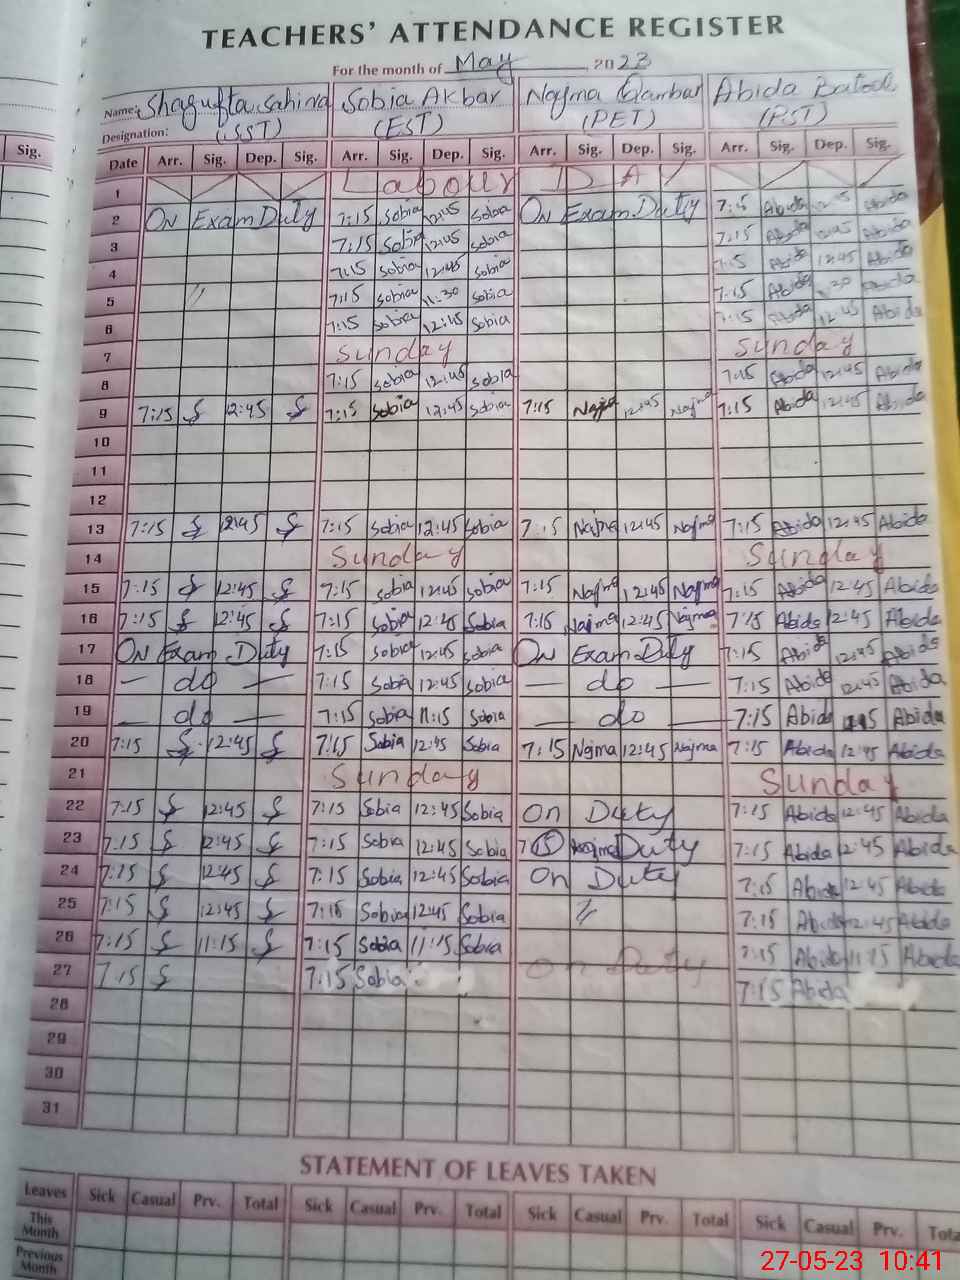 TEACHERS' ATTENDANCE REGISTER
For the month of May 2023
Name: Shagufta Sahina Sobia Akbar Najma Qambar Abida
Designation: (SST) (EST) (PET) (PST)
Sig.
Date Arr. Sig. Dep. Sig. Arr. Sig. Dep. Sig. Arr. Sig. Dep. Sig. Arr. Sig. Dep. Sig.
1 Labour DAY
2 On Exam Duty 7:15 Sobia 12:45 Sobia On Exam Duty 7:15 Abida 12:45 Abida
3 7:15 Sobia 12:45 Sobia 7:15 Abida 12:45 Abida
4 7:15 Sobia 12:45 Sobia 7:15 Abida 12:45 Abida
5 " 7:15 Sobia 11:30 Sobia 7:15 Abida Abida
6 7:15 Sobia 12:45 Sobia 7:15 Abida 12:45 Abida
7 Sunday Sunday
8 7:15 Sobia 12:45 Sobia 7:15 Abida 12:45 Abida
9 7:15 12:45 7:15 Sobia 12:45 Sobia 7:15 Najma 12:45 Najma 7:15 Abida 12:45 Abida
10
11
12
13 7:15 12:45 7:15 Sobia 12:45 Sobia 7:15 Najma 12:45 Najma 7:15 Abida 12:45 Abida
14 Sunday Sunday
15 7:15 12:45 7:15 Sobia 12:45 Sobia 7:15 Najma 12:45 Najma 7:15 Abida 12:45 Abida
16 7:15 12:45 7:15 Sobia 12:45 Sobia 7:15 Najma 12:45 Najma 7:15 Abida 12:45 Abida
17 On Exam Duty 7:15 Sobia 12:45 Sobia On Exam Duty 7:15 Abida 12:45 Abida
18 — do — 7:15 Sobia 12:45 Sobia — do — 7:15 Abida 12:45 Abida
19 — do — 7:15 Sobia 11:15 Sobia — do — 7:15 Abida Abida
20 7:15 12:45 7:15 Sobia 12:45 Sobia 7:15 Najma 12:45 Najma 7:15 Abida 12:45 Abida
21 Sunday Sunday
22 7:15 12:45 7:15 Sobia 12:45 Sobia On Duty 7:15 Abida 12:45 Abida
23 7:15 12:45 7:15 Sobia 12:45 Sobia Najma Duty 7:15 Abida 12:45 Abida
24 7:15 12:45 7:15 Sobia 12:45 Sobia On Duty 7:15 Abida 12:45 Abida
25 7:15 12:45 7:15 Sobia 12:45 Sobia " 7:15 Abida 12:45 Abida
26 7:15 11:15 7:15 Sobia 11:15 Sobia On Duty 7:15 Abida 11:15 Abida
27 7:15 7:15 Sobia 7:15 Abida
28
29
30
31
STATEMENT OF LEAVES TAKEN
Leaves Sick Casual Prv. Total Sick Casual Prv. Total Sick Casual Prv. Total Sick Casual Prv. Tota
This Month
Previous Month
27-05-23 10:41